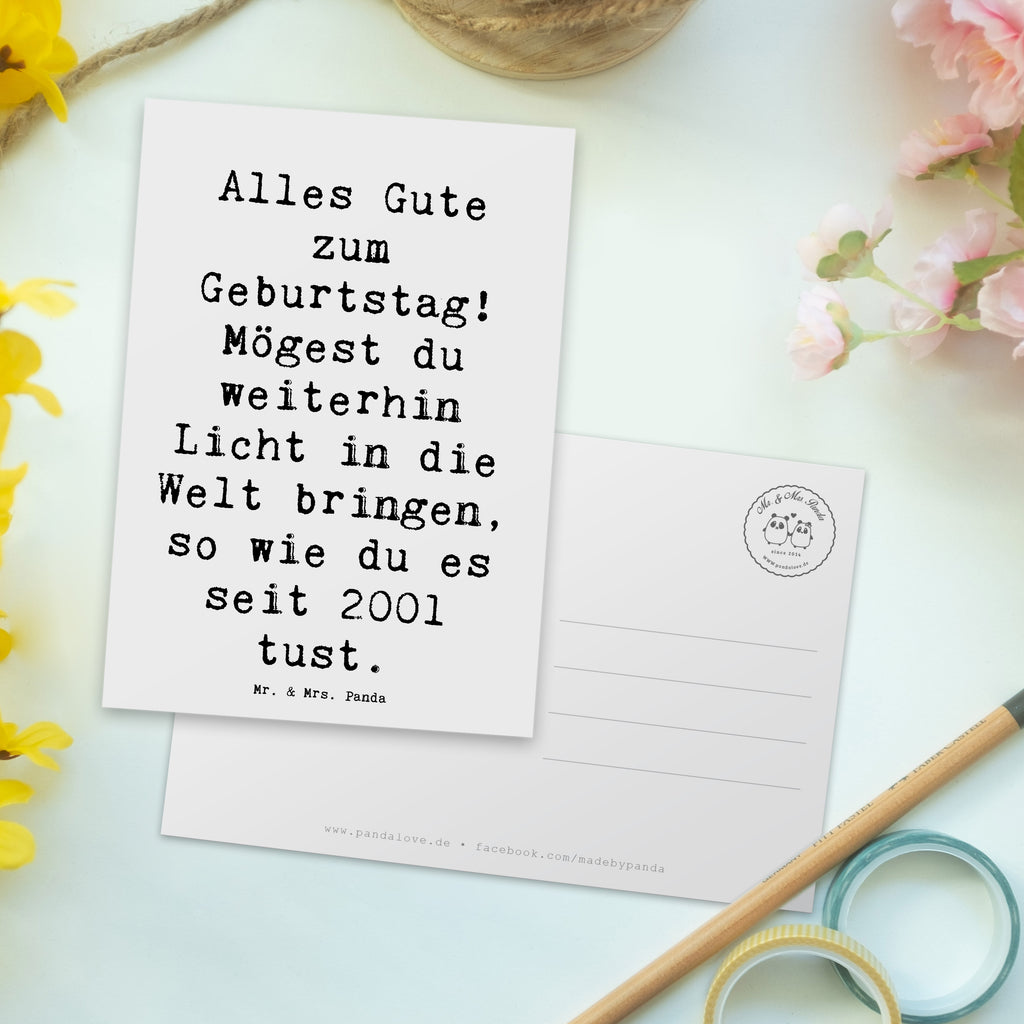 Alles Gute
zum
Geburtstag!
Mögest du
weiterhin
Licht in die
Welt bringen,
so wie du es
seit 2001
tust.
Mr. & Mrs. Panda
Mr. & Mrs. Panda
since 2014
www.pandalove.de
www.pandalove.de • facebook.com/madebypanda
PITT PASTEL FABER-CASTELL